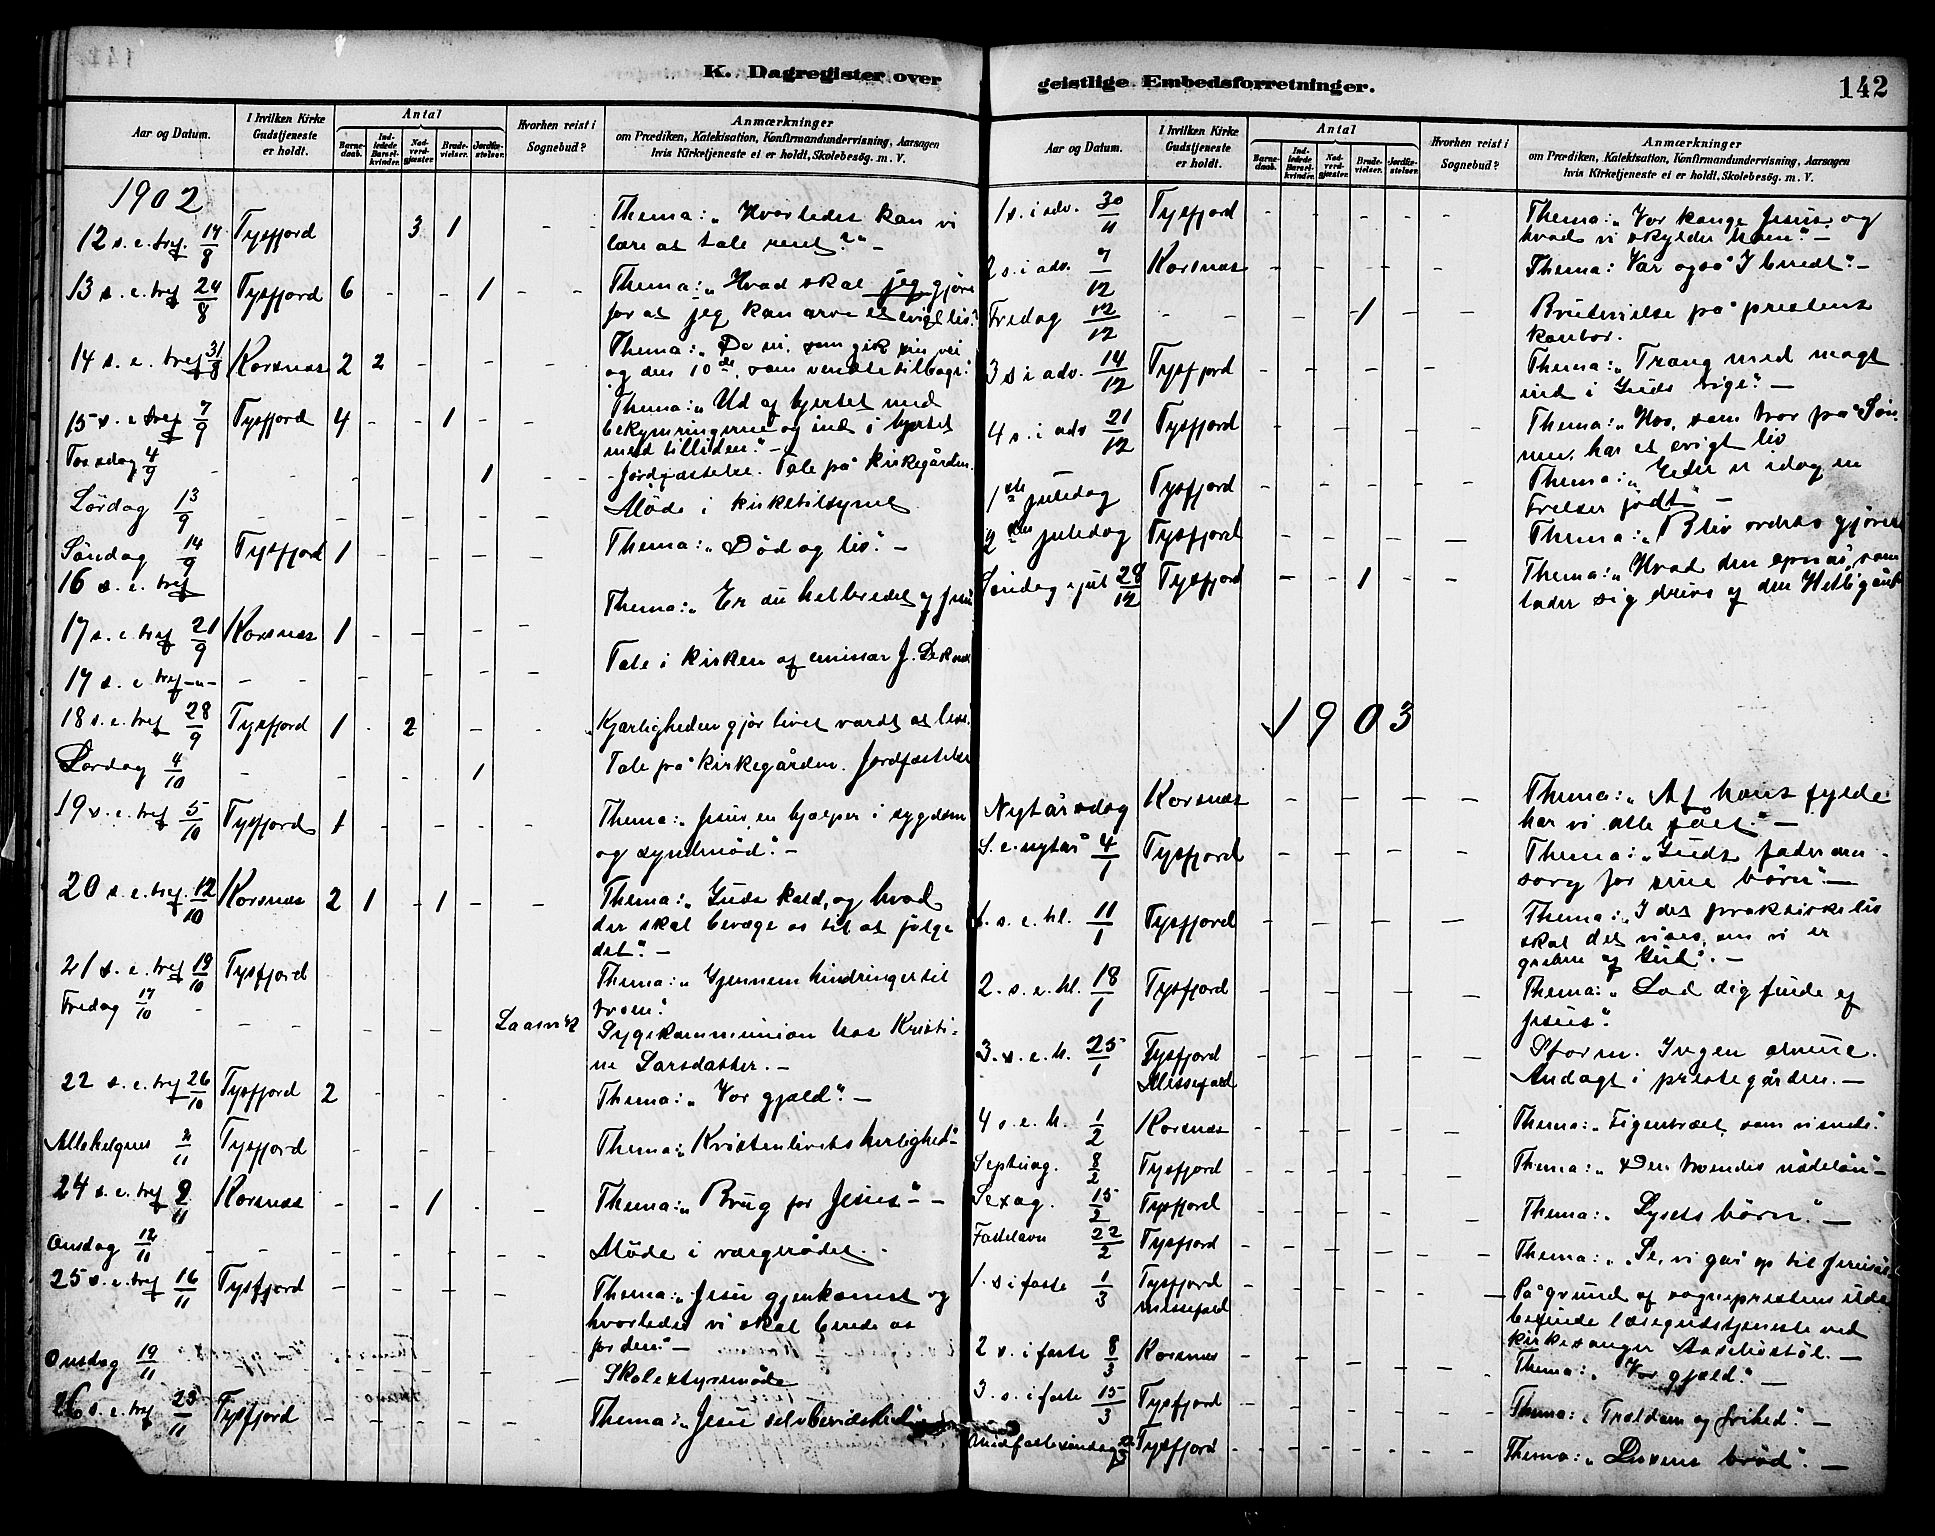 K. Dagregister over
geistlige Embedsforretninger.
142
Aar og Datum.
I hvilken Kirke Gudstjeneste er holdt.
Antal
Barne-daab.
Ind-ledede Barsel-kvinder.
Nad-verd-gjæster.
Brude-vielser.
Jordfæ-stelser.
Hvorhen reist i Sognebud?
Anmærkninger
om Prædiken, Katekisation, Konfirmandundervisning, Aarsagen
hvis Kirketjeneste ei er holdt, Skolebesög. m. V.
1902
12 s. e. tref. 17/8 Tysfjord 3 1 - - Thema: „Hvorledes kan vi
lære at tale rent?" -
13 s. e. tref 24/8 Tysfjord 6 - - 1 - - Thema: „Hvad skal jeg gjøre
for at jeg kan arve et evigt liv?
14 s. e. tref 31/8 Korsnæs 2 2 - - - - Thema: „De ni, som gik sin vei
og den 10de, som vendte tilbage."
15 s. e. tref 7/9 Tysfjord 4 - - 1 - - Thema: „Ud af hjertet med
bekymringerne og ind i hjertet
med tilliden." -
Torsdag 4/9 - - - 1 - Jordfæstelse. Tale på kirkegården.
Lørdag 13/9 - - - - - - Møde i kirketilsynet
Søndag 14/9 Tysfjord 1 - - - - - Thema: „Død og liv." -
16 s. e. tref
17 s. e. tref 21/9 Korsnæs 1 - - - - - Thema: „Er du helbredet af Jesu
17 s. e. tref -"- - - - - - - Tale i kirken af emissær J.
18 s. e. tref 28/9 Tysfjord 1 - 2 - - „Kjærligheden gjør livet værdt at leve.
Lørdag 4/10 - - - - 1 Tale på kirkegården. Jordfæstelse
19 s. e. tref 5/10 Tysfjord 1 - - - - - Thema: „Jesus, en hjælper i sygdom
og syndenød." -
20 s. e. tref. 12/10 Korsnæs 2 1 - 1 - - Thema: „Guds kald, og hvad
der skal bevæge os til at følge
det". -
21 s. e. tref 19/10 Tysfjord Thema: „Gjennem hindringer til
troen."
Fredag 17/10 - - - - - Sygekommunion hos Kristi-
ne Larsdatter. -
22 s. e. tref 26/10 Tysfjord 2 - - - - Thema: „Vor gjæld". -
Allehelgens 2/11 Tysfjord - - - - - - Thema: „Kristenlivets herlighed"
24 s. e. tref 9/11 Korsnæs - - 1 - - Thema: „Brug for Jesus" -
Onsdag 12/11 - - - - - - Møde i værgerådet. -
25 s. e. tref 16/11 Tysfjord - - - - - Thema: „Jesu gjenkomst og
hvorledes vi skal berede os
for den". -
Onsdag 19/11 - - - - - - Skolestyremøde
26 s. e. tref 23/11 Tysfjord - - - - - - Thema: „Jesu selvbevidsthed"
Aar og Datum.
I hvilken Kirke Gudstjeneste er holdt.
Antal
Barne-daab.
Ind-ledede Barsel-kvinder.
Nad-verd-gjæster.
Brude-vielser.
Jordfæ-stelser.
Hvorhen reist i Sognebud?
Anmærkninger
om Prædiken, Katekisation, Konfirmandundervisning, Aarsagen
hvis Kirketjeneste ei er holdt, Skolebesög. m. V.
1 s. i adv. 30/11 Tysfjord - - - - - - Thema: „Vor konge Jesus, og
hvad vi skylder ham." -
2 s. i adv. 7/12 Korsnæs - - - - - - Thema: Vær også I beredt". -
Fredag 12/12 - - - 1 - - Brudevielse på prestens
kontor.
3 s i adv. 14/12 Tysfjord - - - - - - Thema: „Træng med magt
ind i Guds rige". -
4 s. i adv 21/12 Tysfjord - - - - - - Thema: „Hvo, som tror på Søn-
nen, har et evigt liv
1ste juledag Tysfjord - - - - - - Thema: „Eder er idag en
Frelser født" -
2den juledag Tysfjord - - - - - - Thema: „Bliv ordets gjørere
Søndag i jul 28/12 Tysfjord - - 1 - - Thema: „Hvad den opnår, som
lader sig drive af den Helligånd
1903
Nytårsdag Korsnæs - - - - - - Thema: „Af hans fylde
har vi alle fået". -
S. e. nytår 4/1 Tysfjord - - - - - - Thema: „Guds faderom-
sorg for sine børn". -
1. s. e. hl. 11/1 Tysfjord - - - - - - Thema: „I det praktiske liv
skal det vises, om vi er
grebne af Gud". -
2. s. e. hl. 18/1 Tysfjord - - - - - - Thema: „Lad dig finde af
Jesus".
3. s. e. h. 25/1 Tysfjord - - - - - - Storm. Ingen almue.
Messefald Andagt i prestegården. -
4 s. e. h. 1/2 Korsnæs - - - - - - Thema: „Figentræet, som visnede."
Septuag. 8/2 Tysfjord - - - - - - Thema: „Den troendes nådeløn" -
Sexag. 15/2 Tysfjord - - - - - - Thema: „Lysets børn". -
Fastelavn 22/2 Tysfjord - - - - - - Thema: „Se, vi går op til Jerusal.
1. s i faste 1/3 Tysfjord - - - - - - På grund af sogneprestens ilde
messefald befinde læsegudstjeneste ved
kirkesanger
2 s. i faste 8/3 Korsnæs - - - - - - Thema: „Vor gjæld." -
3. s. i faste 15/3 Tysfjord - - - - - - Thema: „Trældom og frihed". -
Midfastesøndag 22/3 Tysfjord - - - - - - Thema: „Livsens brød". -